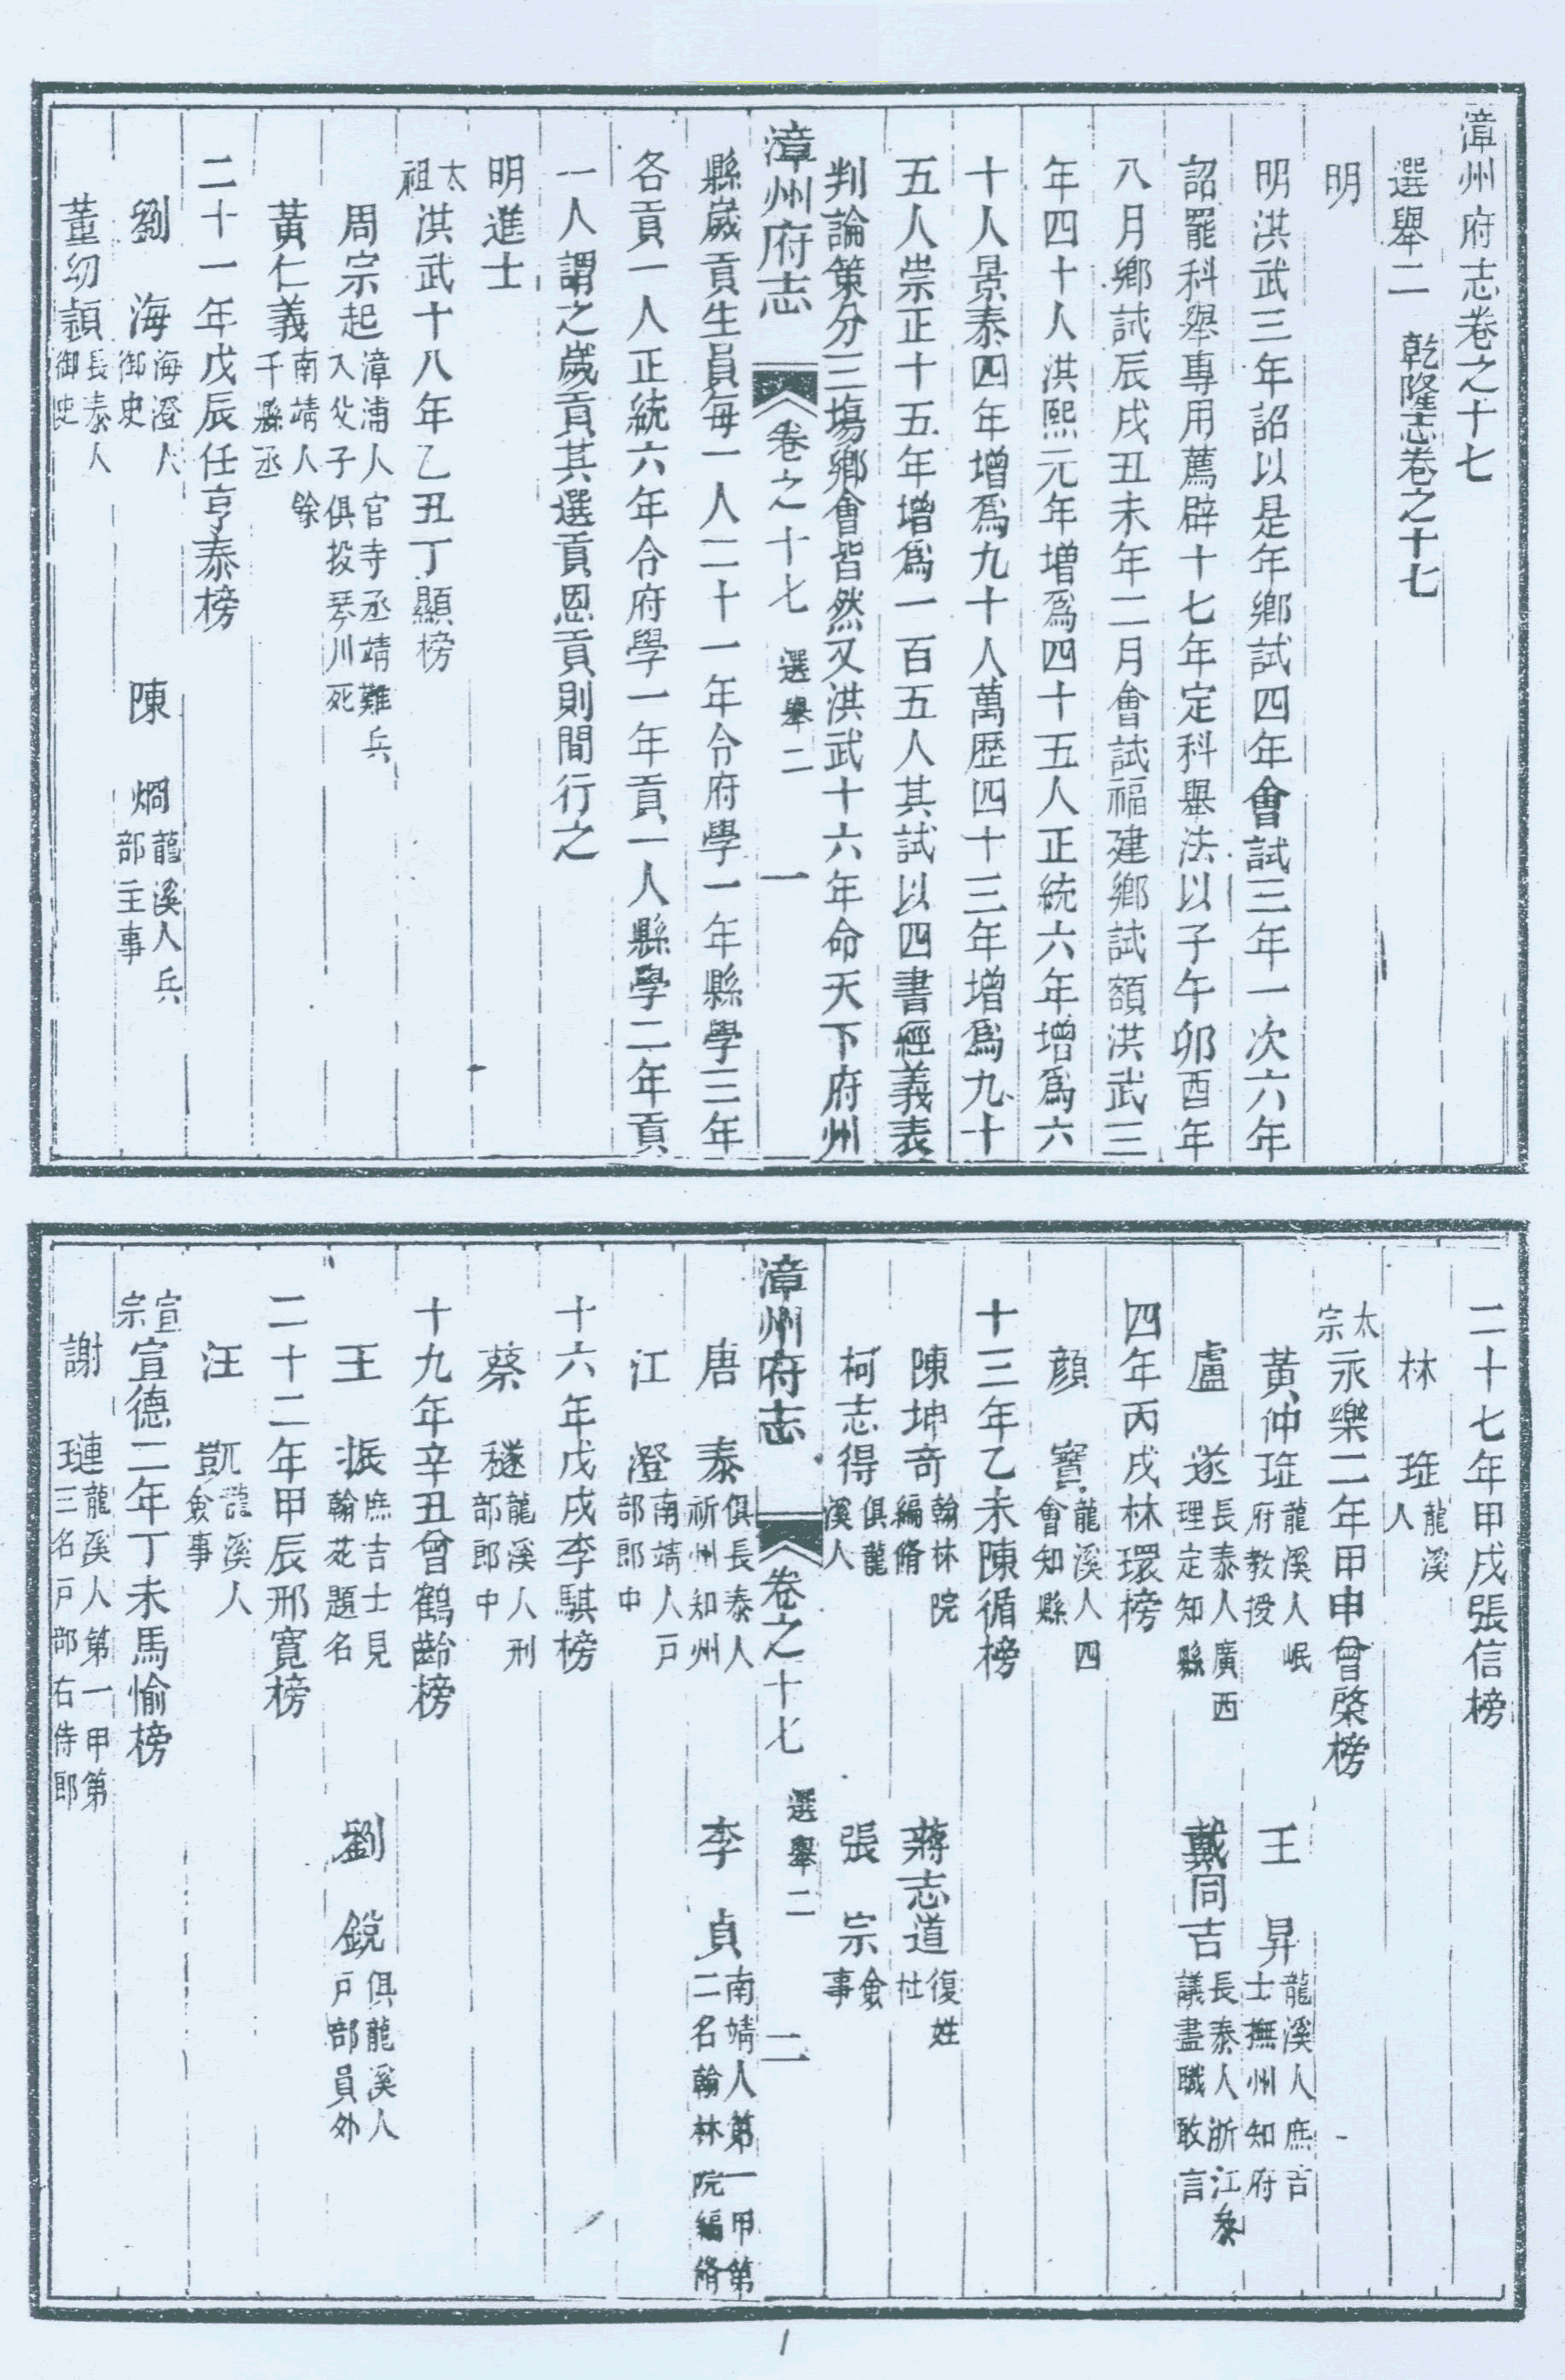 漳州府志卷之十七
選舉二　乾隆志卷之十七
明
明洪武三年詔以是年鄉試四年會試三年一次六年
詔罷科舉專用薦辟十七年定科舉法以子午卯酉年
八月鄉試辰戌丑未年二月會試福建鄉試額洪武三
年四十人洪熙元年增爲四十五人正統六年增爲六
十人景泰四年增爲九十人萬歷四十三年增爲九十
五人崇正十五年增爲一百五人其試以四書經義表
判論策分三塲鄉會皆然又洪武十六年命天下府州
漳州府志　卷之十七　選舉二　一
縣歲貢生員每一人二十一年令府學一年縣學三年
各貢一人正統六年令府學一年貢一人縣學二年貢
一人謂之歲貢其選貢恩貢則間行之
明進士
太祖洪武十八年乙丑丁顯榜
周宗起漳浦人官寺丞靖難兵入父子俱投琴川死
黃仁義南靖人餘千縣丞
二十一年戊辰任亨泰榜
劉　海海澄人御史　陳　烱龍溪人兵部主事
董㓜頴長泰人御史
二十七年甲戌張信榜
林　玨龍溪人
太宗永樂二年甲申曾棨榜
黃仲玨龍溪人岷府教授　王　昇龍溪人庶吉士撫州知府
盧　遂長泰人廣西理定知縣　戴同吉長泰人浙江參議盡職敢言
四年丙戌林環榜
顏　寶龍溪人四會知縣
十三年乙未陳循榜
陳坤奇翰林院編脩　蔣志道復姓杜
柯志得俱龍溪人　張　宗僉事
漳州府志　卷之十七　選舉二　二
唐　泰俱長泰人祈州知州　李　貞南靖人第一甲第二名翰林院編脩
江　澄南靖人戸部郎中
十六年戊戌李騏榜
蔡　穟龍溪人刑部郎中
十九年辛丑曾鶴齡榜
王　振庶吉士見翰苑題名　劉　銳俱龍溪人戸部員外
二十二年甲辰邢寬榜
汪　凱龍溪人僉事
宣宗宣德二年丁未馬愉榜
謝　璉龍溪人第一甲第三名戸部右侍郎
1